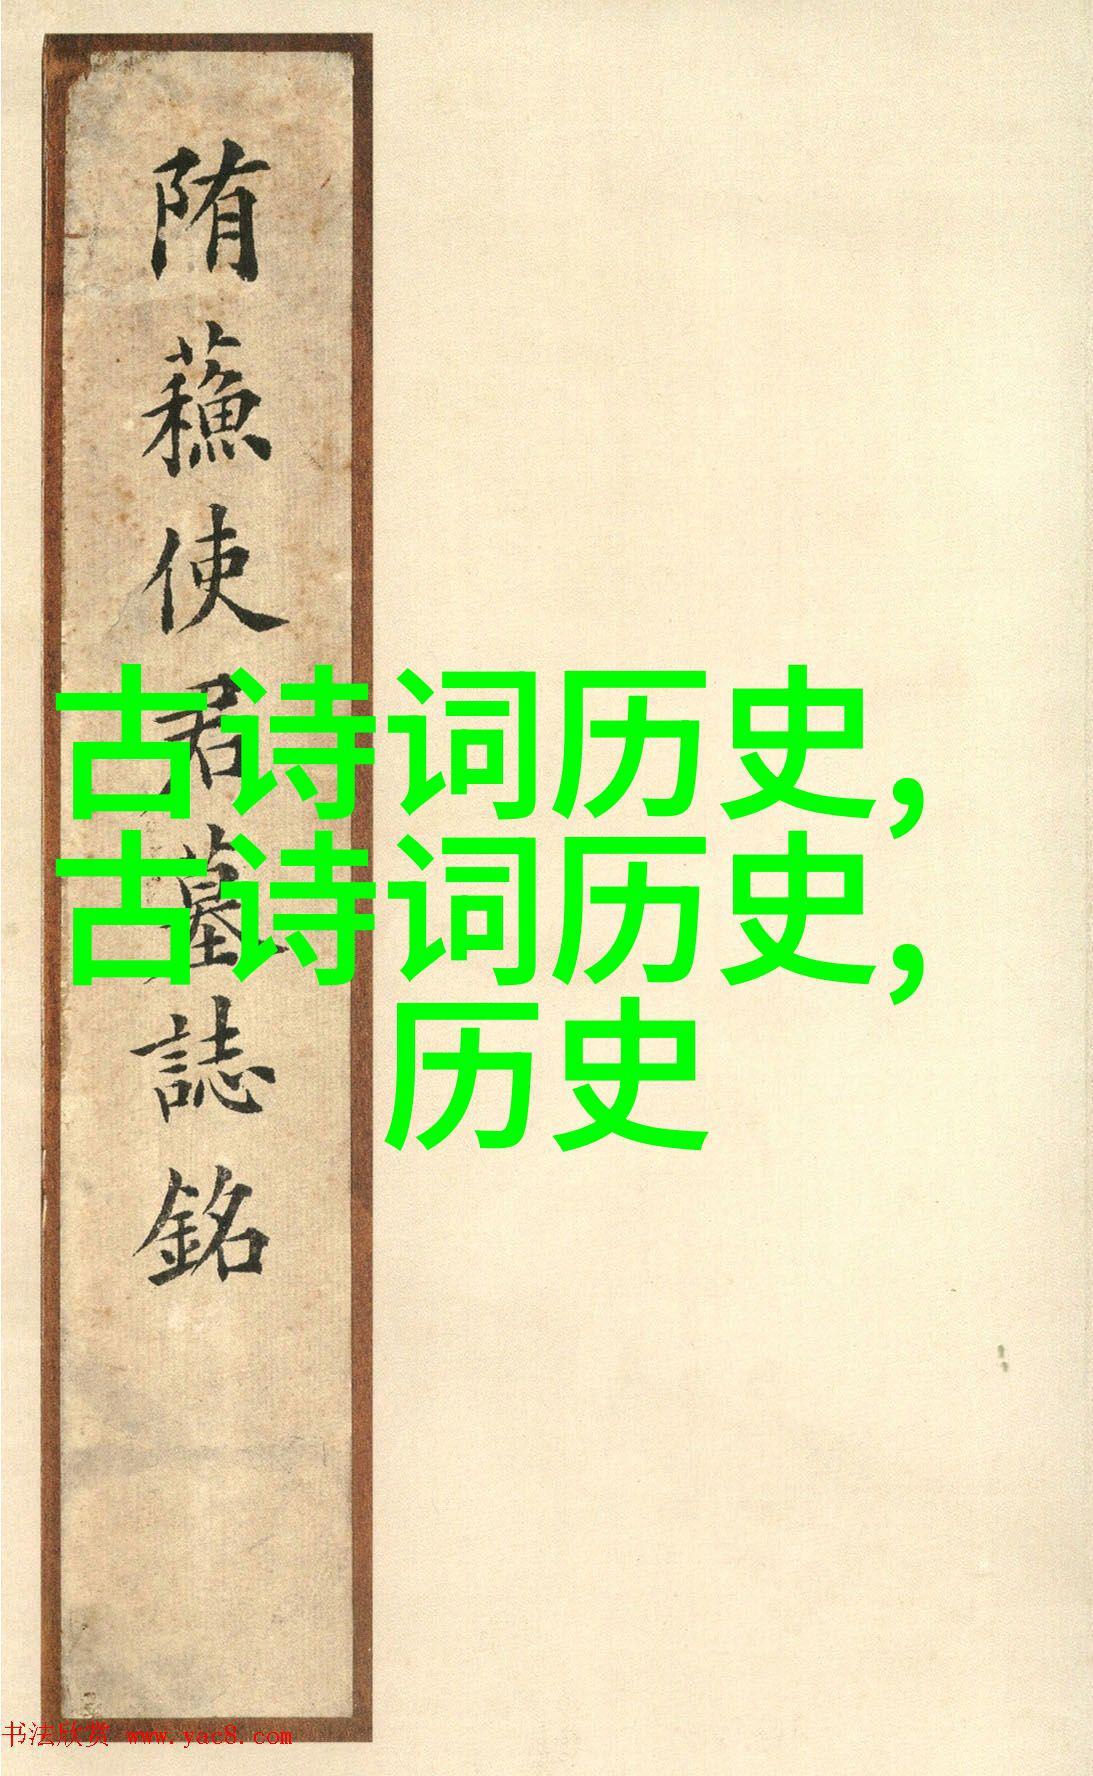 隋蘓使君墓誌銘
古诗词历史,
古诗词历史,
历史
书法欣赏 www.yac8.com